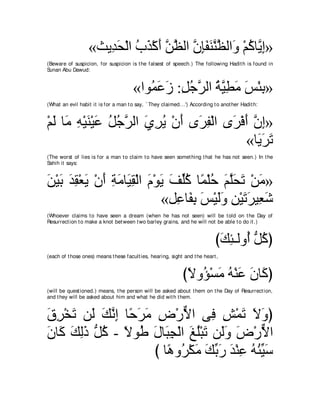 «إِيَّاكُمْ وَالظَّنَّ فَإِنَّ الظَّنَّ أَكْذَبُ الْحَدِيثِ»
(Beware of suspicion, for suspicion is the falsest of speech.) The following Hadith is found in
Sunan Abu Dawud:
«بِئْسَ مَطِيَّةُ الرَّجُلِ: زَعَمُوا»
(What an evil habit it is for a man to say, `They claimed...') According to another Hadith:
«إِنَّ أَفْرَى الْفِرَى أَنْ يُرِيَ الرَّجُلُ عَيْنَيْهِ مَا لَمْ
تَرَيَا»
(The worst of lies is for a man to claim to have seen something that he has not seen.) In the
Sahih it says:
«مَنْ تَحَلَّمَ حُلُمًا كُلِّفَ يَوْمَ الْقِيَامَةِ أَنْ يَعْقِدَ بَيْنَ
شَعِيرَتَيْنِ وَلَيْسَ بِفَاعِلٍ»
(Whoever claims to have seen a dream (when he has not seen) will be told on the Day of
Resurrection to make a knot between two barley grains, and he will not be able to do it.)
(كُلُّ أُولَـئِكَ)
(each of those ones) means these faculties, hearing, sight and the heart,
(كَانَ عَنْهُ مَسْؤُولاً)
(will be questioned.) means, the person will be asked about them on the Day of Resurrection,
and they will be asked about him and what he did with them.
(وَلاَ تَمْشِ فِى الاٌّرْضِ مَرَحًا إِنَّكَ لَن تَخْرِقَ
الاٌّرْضَ وَلَن تَبْلُغَ الْجِبَالَ طُولاً - كُلُّ ذَلِكَ كَانَ
سَيِّئُهُ عِنْدَ رَبِّكَ مَكْرُوهًا )